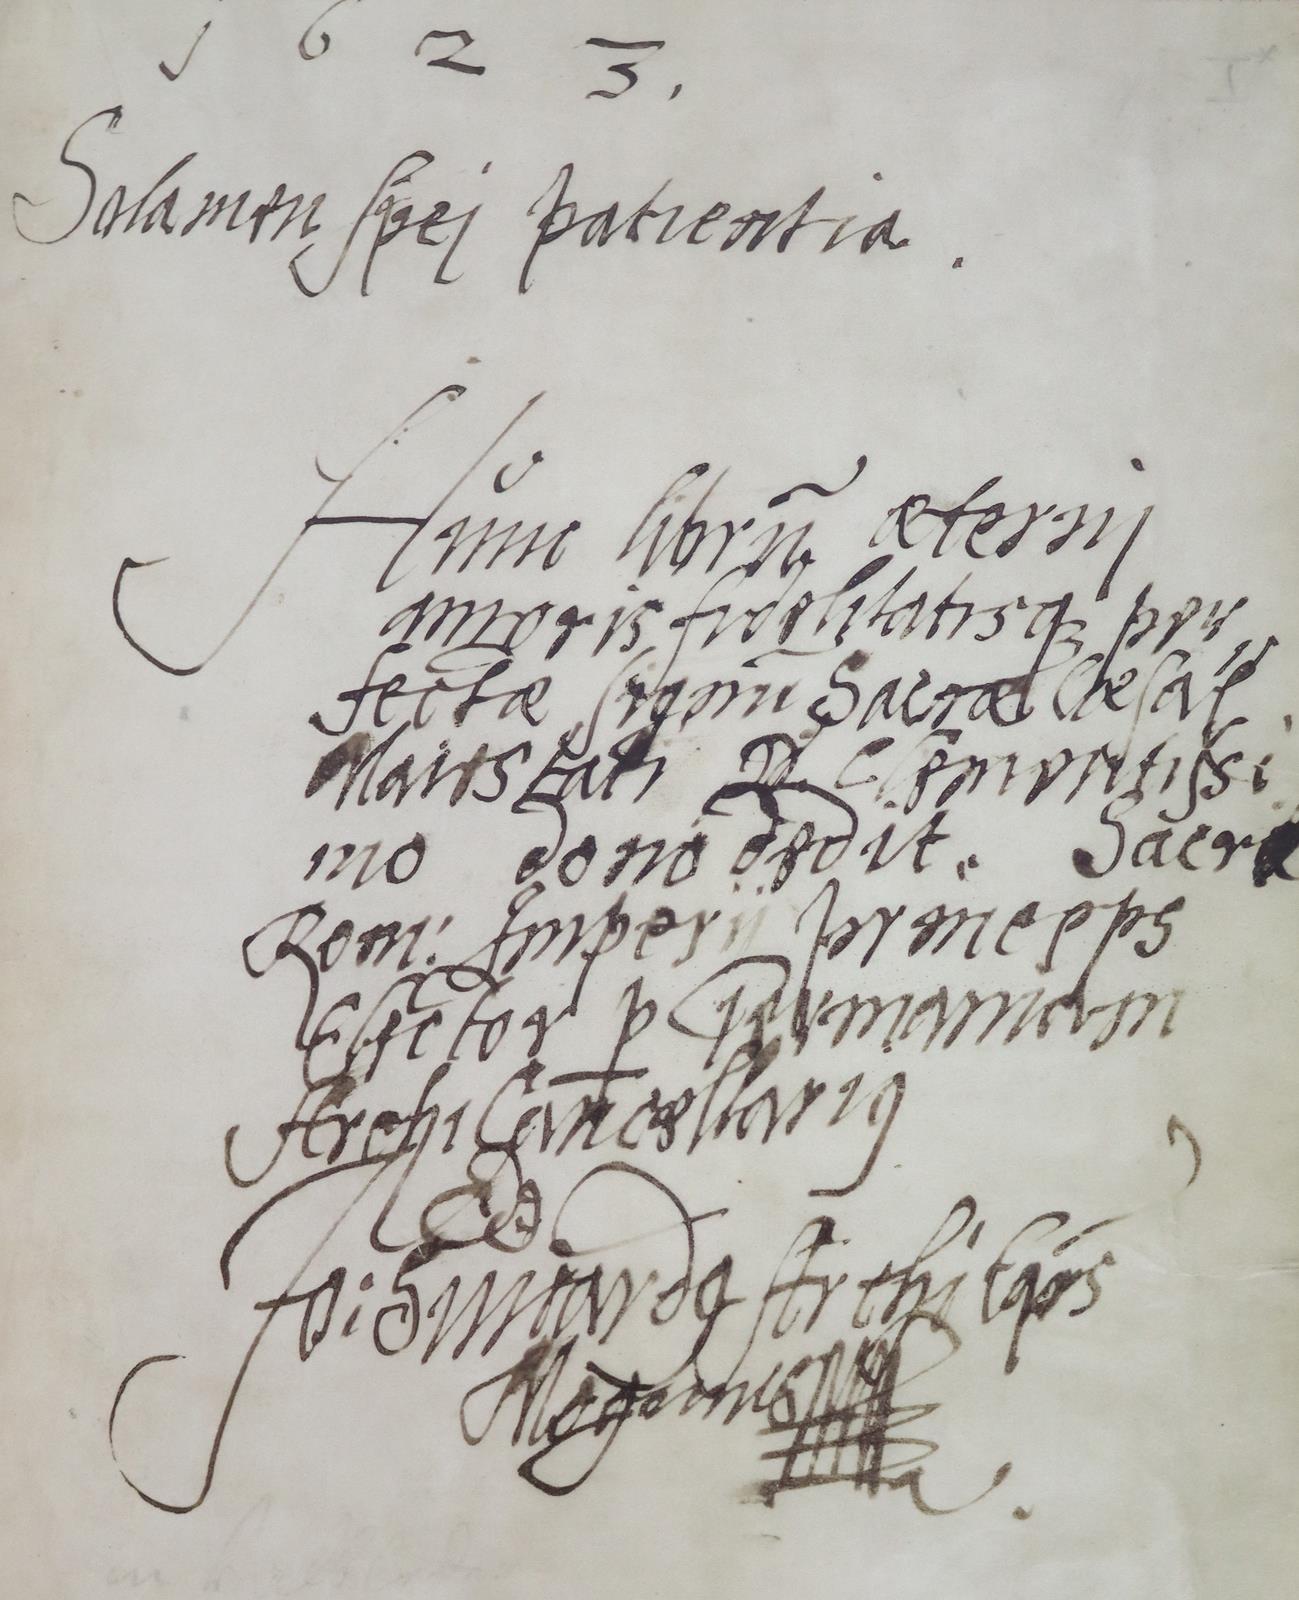 1623.
Solamen spej patientia.
Hunc librũ æternj
amoris fidelitatisq3 per
fectæ signũ Sacræ Cæsar
Maiestati D. Clementissi
mo dono dedit. Sacri
Rom: Imperij princeps
Elector p Germaniam
ArchiCancellarius
Jo: Suicardus Archi Epūs
Mogunt